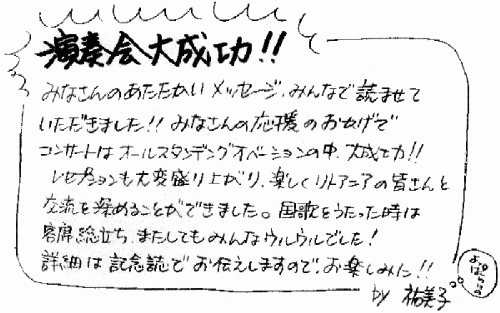 演奏会大成功!!
みなさんのあたたかいメッセージ、みんなで読ませて
いただきました!! みなさんの応援のおかげで
コンサートはオールスタンディングオベーションの中、大成功!!
レセプションも大変盛り上がり、楽しくリトアニアの皆さんと
交流を深めることができました。国歌をうたった時は
客席総立ち、またしてもみんなウルウルでした!
詳細は記念誌でお伝えしますので、お楽しみに!!
by 祐美子